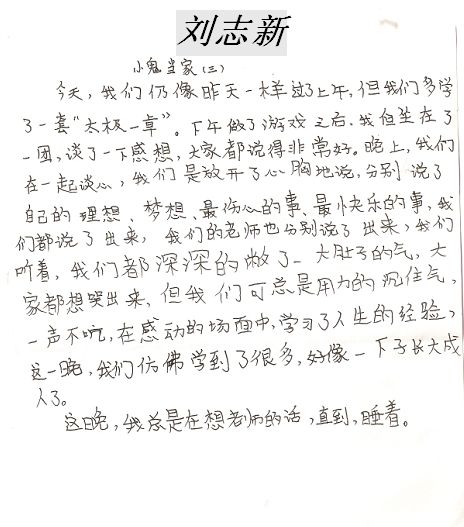 刘志新
小鬼当家(三)
今天,我们仍像昨天一样过了上午,但我们多学
了一套“太极一章”。下午做了游戏之后,我们坐在了
一团,谈了一下感想,大家都说得非常好。晚上,我们
在一起谈心,我们是放开了心胸地说,分别说了
自己的理想、梦想、最伤心的事、最快乐的事,我
们都说了出来,我们的老师也分别说了出来,我们
听着,我们都深深的憋了一大肚子的气,大
家都想哭出来,但我们可总是用力的沉住气,
一声不吭,在感动的场面中,学习了人生的经验,
这一晚,我们仿佛学到了很多,好像一下子长大成
人了。
这晚,我总是在想老师的话,直到,睡着。